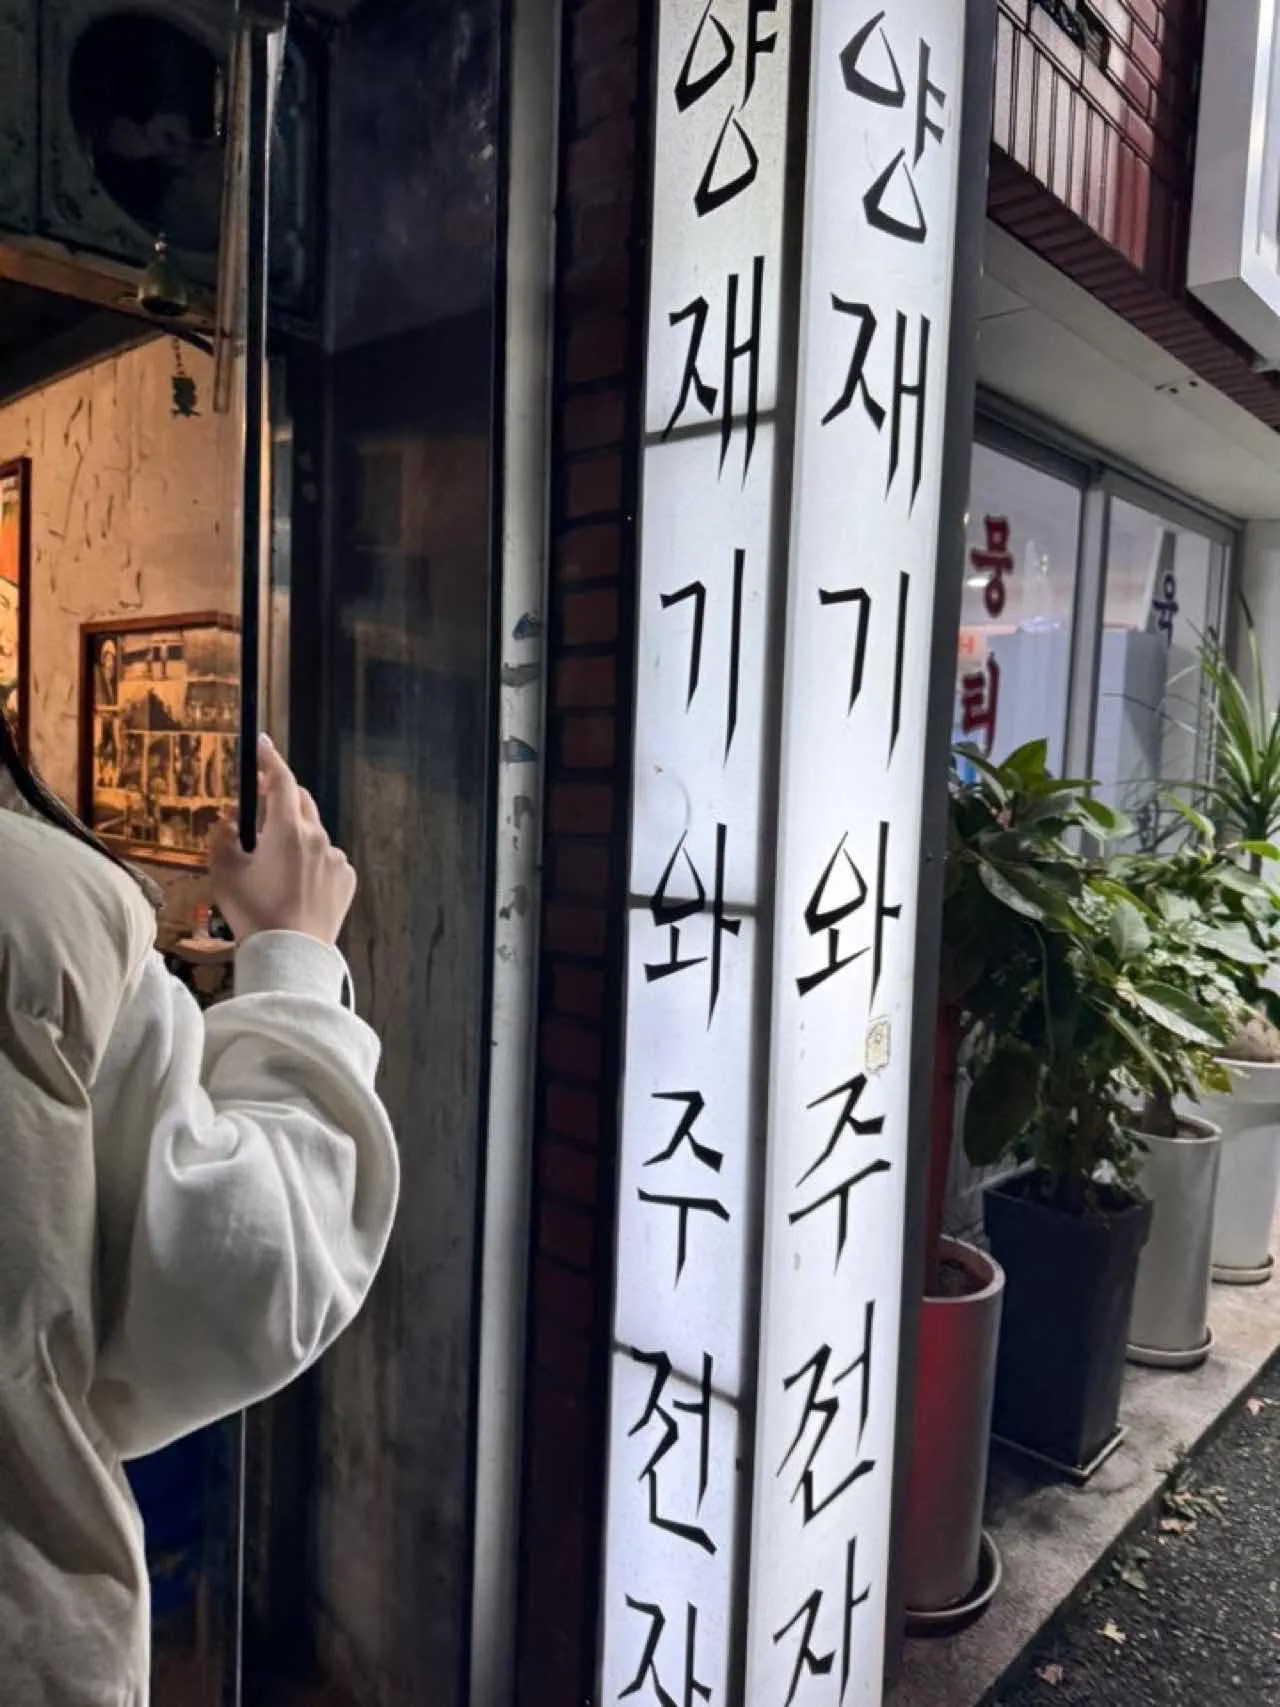 양재기와주전자
양재기와주전자
뭉
티
육